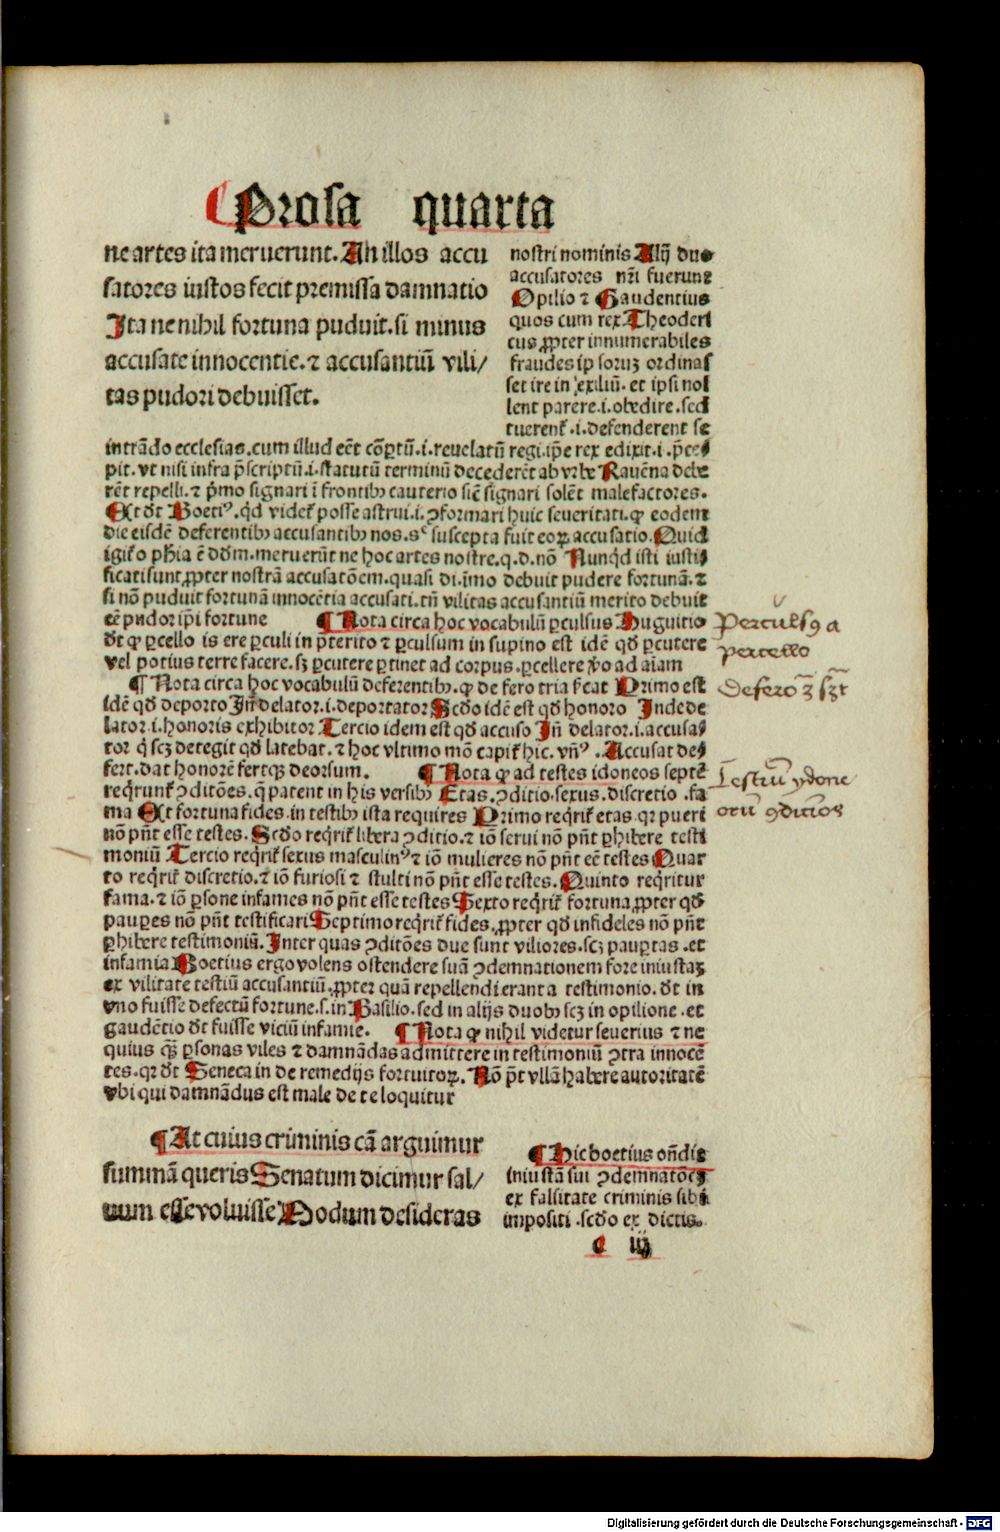 Prosa quarta
ne artes ita meruerunt. An illos accu
satores iustos fecit premissa damnatio
Ita ne nihil fortuna puduit. si minus
accusate innocentie. ⁊ accusantiū vili/
tas pudori debuisset.
nostri nominis Alij duo
accusatores nr̄i fuerunt
Opilio ⁊ Gaudentius
quos cum rex Theoderi
cus ꝓpter innumerabiles
fraudes ipsoruꝫ ordinas
set ire in exiliū. et ipsi nol
lent parere .i. obedire. sed
tuerent᷑ .i. defenderent se
intrādo ecclesias. cum illud eēt cōꝑtū .i. reuelatū regi. ip̄e rex edixit .i. p̄ce/
pit. vt nisi infra p̄scriptū .i. statutū terminū decederēt ab vrbe Rauēna debe
rēt repelli. ⁊ p̄mo signari ī frontibꝰ cauterio sic̄ signari solēt malefactores.
Et dt̄ Boetiꝰ. qd̄ videt᷑ posse astrui .i. ꝯformari huic seueritati. ꝙ eodem
die eisdē deferentibꝰ accusantibꝰ nos. sc̄ suscepta fuit eoꝝ accusatio. Quid
igit᷑ o ph̄ia ē dd̄m. meruerūt ne hoc artes nostre. q. d. nō Nunqd̄ isti iusti/
ficati sunt ꝓpter nostrā accusatōem. quasi di. īmo debuit pudere fortunā. ⁊
si nō puduit fortunā innocētia accusati. tn̄ vilitas accusantiū merito debuit
eē pudor ip̄i fortune ¶ Nota circa hoc vocabulū ꝑculsus Huguitio
dt̄ ꝙ ꝑcello is ere ꝑculi in p̄terito ⁊ ꝑculsum in supino est idē qd̄ ꝑcutere
vel potius terrefacere. sꝫ ꝑcutere ꝑtinet ad corpus. ꝑcellere v̄o ad aīam
¶ Nota circa hoc vocabulū deferentibꝰ. ꝙ defero tria sīcat Primo est
idē qd̄ deporto Iñ delator .i. deportator Scd̄o idē est qd̄ honoro Inde de
lator .i. honoris exhibitor Tercio idem est qd̄ accuso Iñ delator .i. accusa/
tor q̄ scꝫ detegit qd̄ latebat. ⁊ hoc vltimo mō capit᷑ hic. vn̄ꝰ. Accusat de/
fert. dat honorē fertqꝫ deorsum. ¶ Nota ꝙ ad testes idoneos septē
reqr̄unt᷑ ꝯditōes. q̄ patent in his versibꝰ Etas. ꝯditio. sexus. discretio. fa
ma Et fortuna fides. in testibꝰ ista requires Primo reqr̄it᷑ etas qꝛ pueri
nō pn̄t esse testes. Scd̄o reqr̄it᷑ libera ꝯditio. ⁊ iō serui nō pn̄t ꝑhibere testi
moniū Tercio reqr̄it᷑ sexus masculinꝰ ⁊ iō mulieres nō pn̄t eē testes Quar
to reqr̄it᷑ discretio. ⁊ iō furiosi ⁊ stulti nō pn̄t esse testes. Quinto reqr̄itur
fama. ⁊ iō ꝑsone infames nō pn̄t esse testes Sexto reqr̄it᷑ fortuna. ꝓpter qd̄
pauꝑes nō pn̄t testificari Septimo reqr̄it᷑ fides. ꝓpter qd̄ infideles nō pn̄t
ꝑhibere testimoniū. Inter quas ꝯditōes due sunt viliores. scꝫ pauꝑtas. et
infamia Boetius ergo volens ostendere suā ꝯdemnationem fore iniustaꝫ
ex vilitate testiū accusantiū. ꝓpter quā repellendi erant a testimonio. dt̄ in
vno fuisse defectū fortune. s. in Basilio. sed in alijs duobꝰ scꝫ in opilione. et
gaudētio dt̄ fuisse viciū infamie. ¶ Nota ꝙ nihil videtur seuerius ⁊ ne
quius qꝫ ꝑsonas viles ⁊ damnādas admittere in testimoniū ꝯtra innocē
tes. qꝛ dt̄ Seneca in de remedijs fortuitoꝝ. Nō pt̄ vllā habere autoritatē
vbi qui damnādus est male de te loquitur
Perculsꝯ a
percello
Defero 3 sꝫt
Testiū ydone
orū ꝯditiōes
¶ At cuius criminis cā arguimur
summā queris Senatum dicimur sal/
uum esse voluisse Modum desideras
¶ Hic boetius oñdit
iniustā sui ꝯdemnatōeꝫ
ex falsitate criminis sibi
impositi. scd̄o ex dictis.
c iij
Digitalisierung gefördert durch die Deutsche Forschungsgemeinschaft - DFG